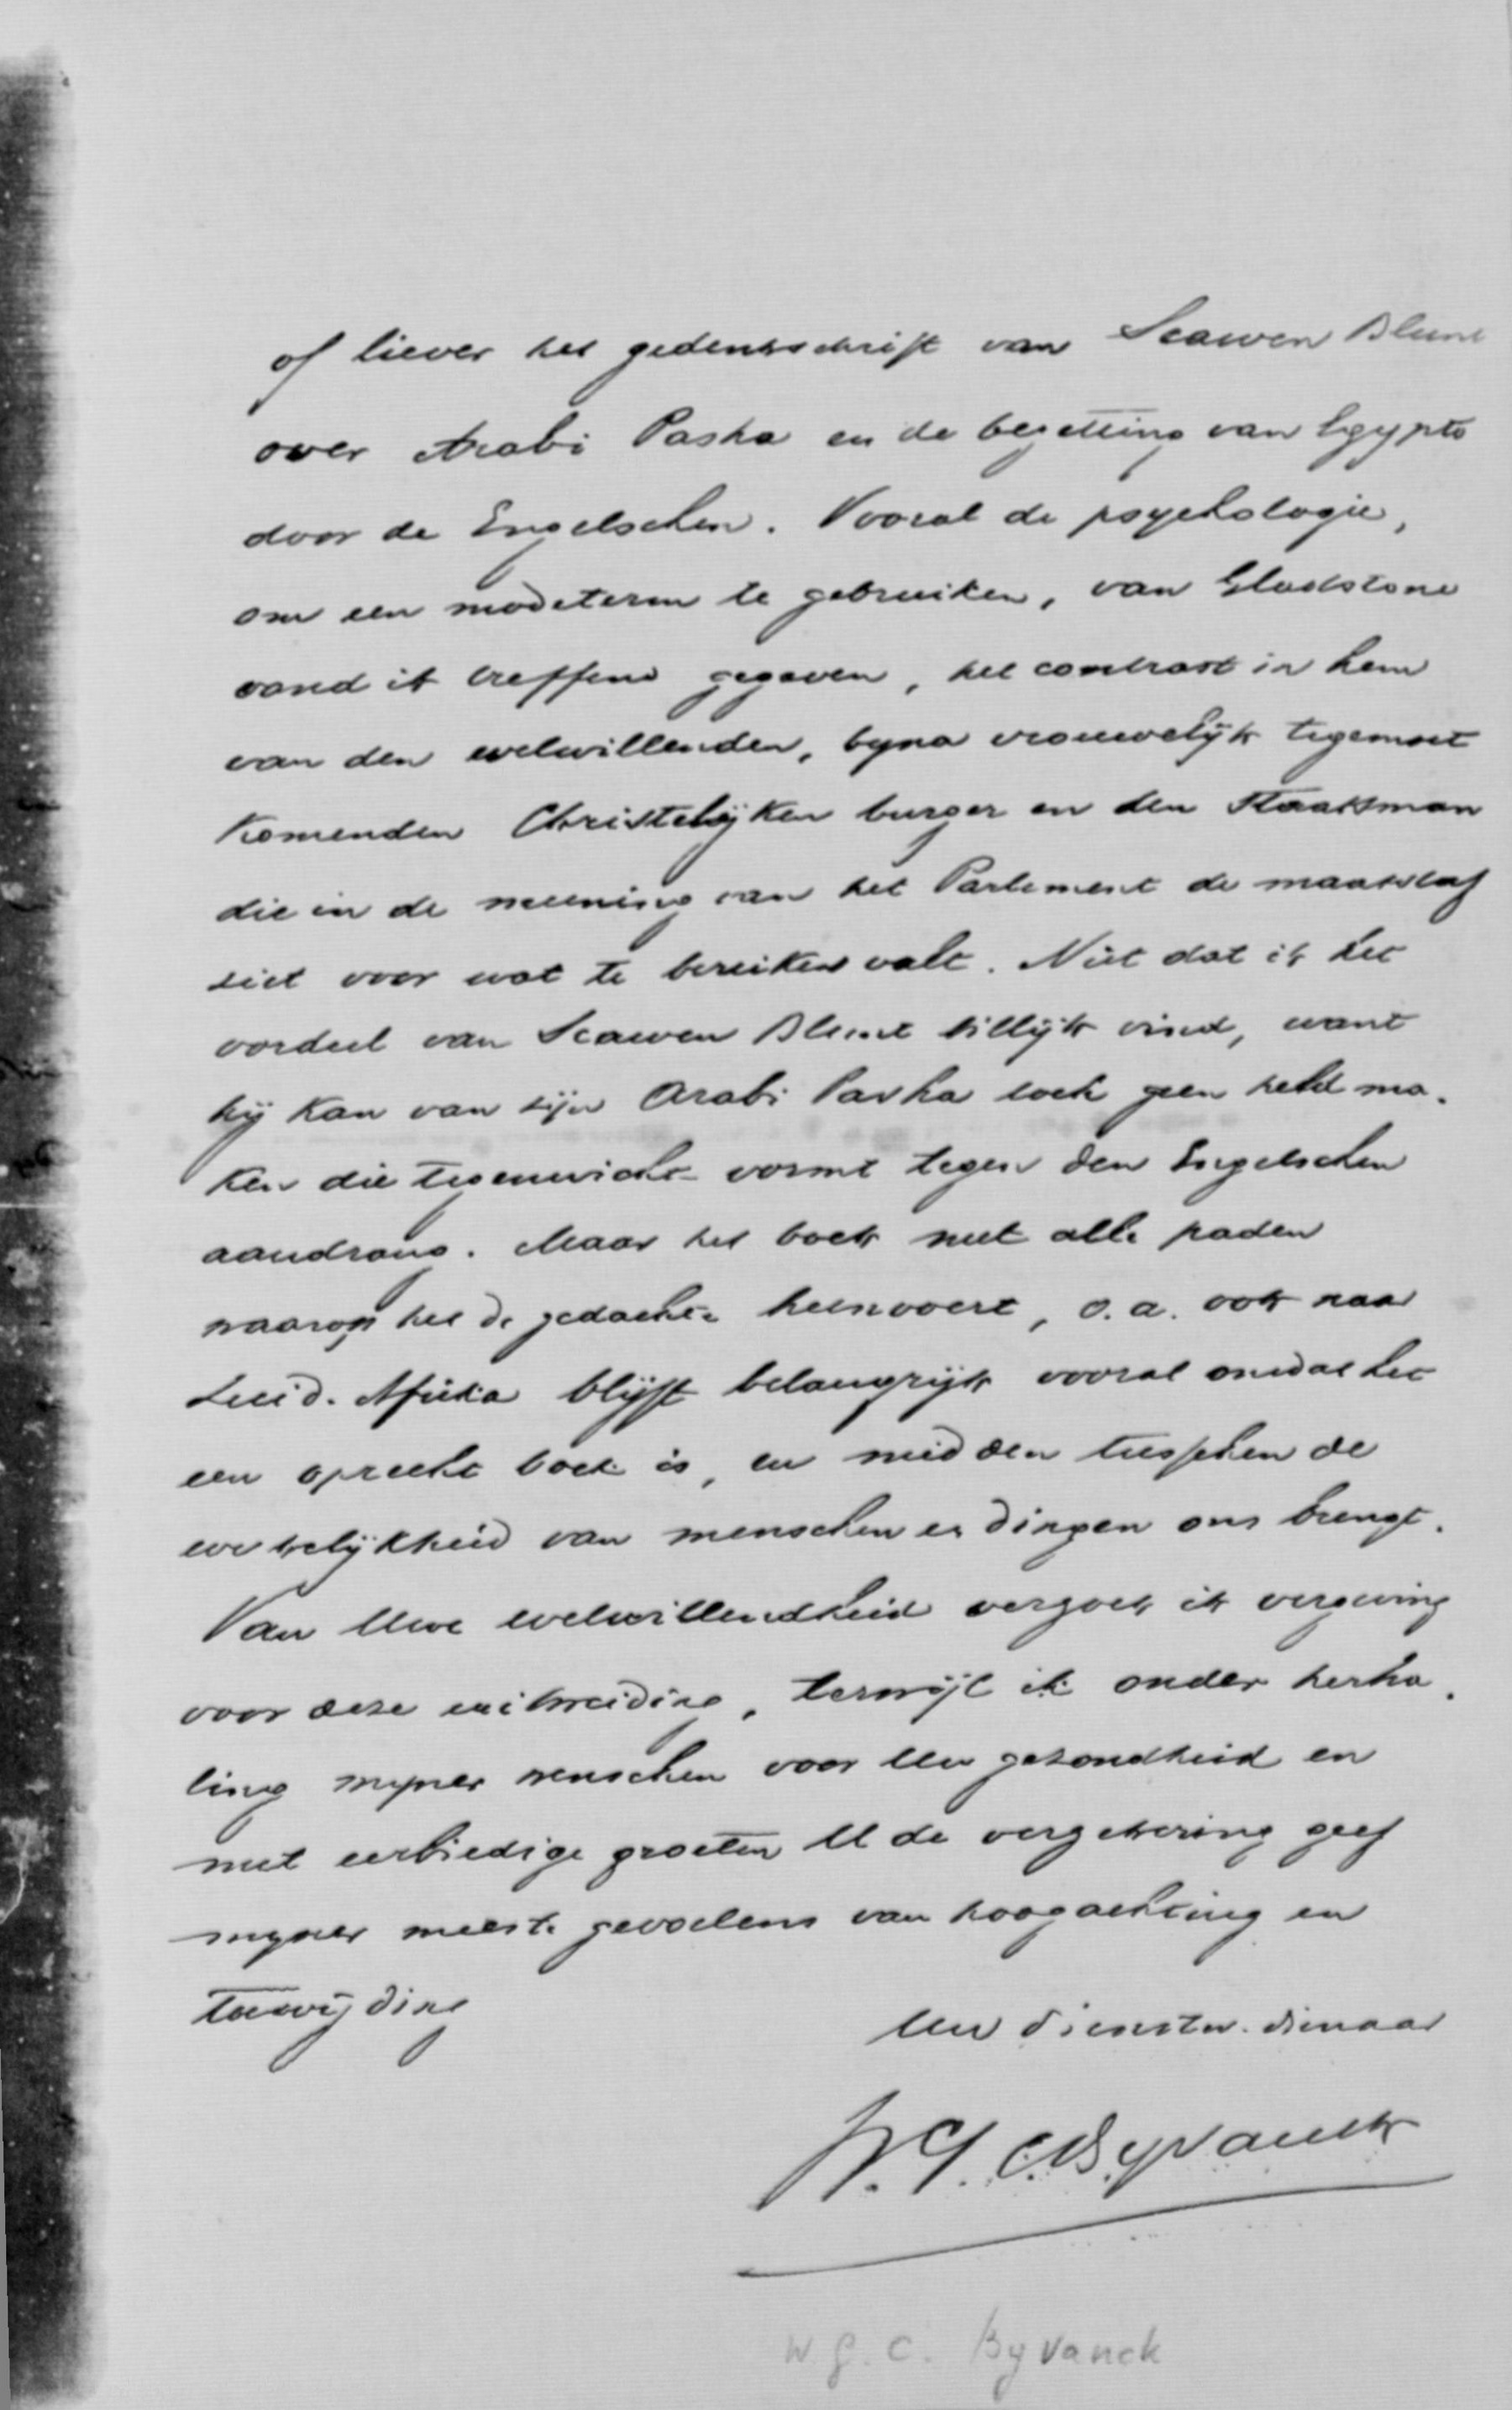 of liever het gedenkschrift van Scawen Blunt
over Arabi Pasha en de bezetting van Egypte
door de Engelschen. Vooral de psychologie,
om een modeterm te gebruiken, van Gladstone
vond ik treffend gegeven, het contrast in hem
van den welwillenden, byna vrouwelijk tegemoet
komenden Christelijken burger en den Staatsman
die in de meening van het Parlement de maatstaf
ziet voor wat te bereiken valt. Niet dat ik het
oordeel van Scawen Blunt billijk vind, want
hij kan van zijn Arabi Pasha toch geen held ma-
ken die tegenwicht vormt tegen den Engelschen
aandrang. Maar het boek met alle paden
waarop het de gedachte heenvoert, o.a. ook naar
Zuid-Afrika blijft belangrijk vooral omdat het
een oprecht boek is, en midden tusschen de
werkelijkheid van menschen en dingen ons brengt.
Van Uwe welwillendheid verzoek ik vergeving
voor deze uitweiding, terwijl ik onder herha-
ling myner wenschen voor Uw gezondheid en
met eerbiedige groeten U de verzekering geef
myner meeste gevoelens van hoogachting en
toewijding
Uw dienstw. dienaar
W. G. C. Byvanck
W. G. C. Byvanck